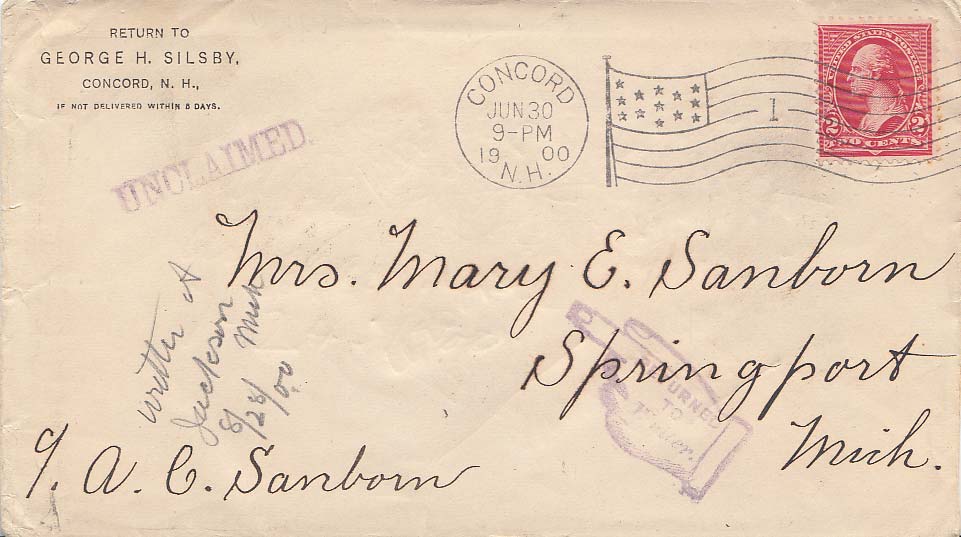 RETURN TO
GEORGE H. SILSBY,
CONCORD, N. H.,
IF NOT DELIVERED WITHIN 5 DAYS.
CONCORD
JUN 30
9-PM
19 00
N.H.
1
UNITED STATES POSTAGE
2 2
TWO CENTS
UNCLAIMED.
Mrs. Mary E. Sanborn
Springport
Mich.
℅ A. C. Sanborn
written
Jackson
Mich
8/28/00
RETURNED
TO
Writer.